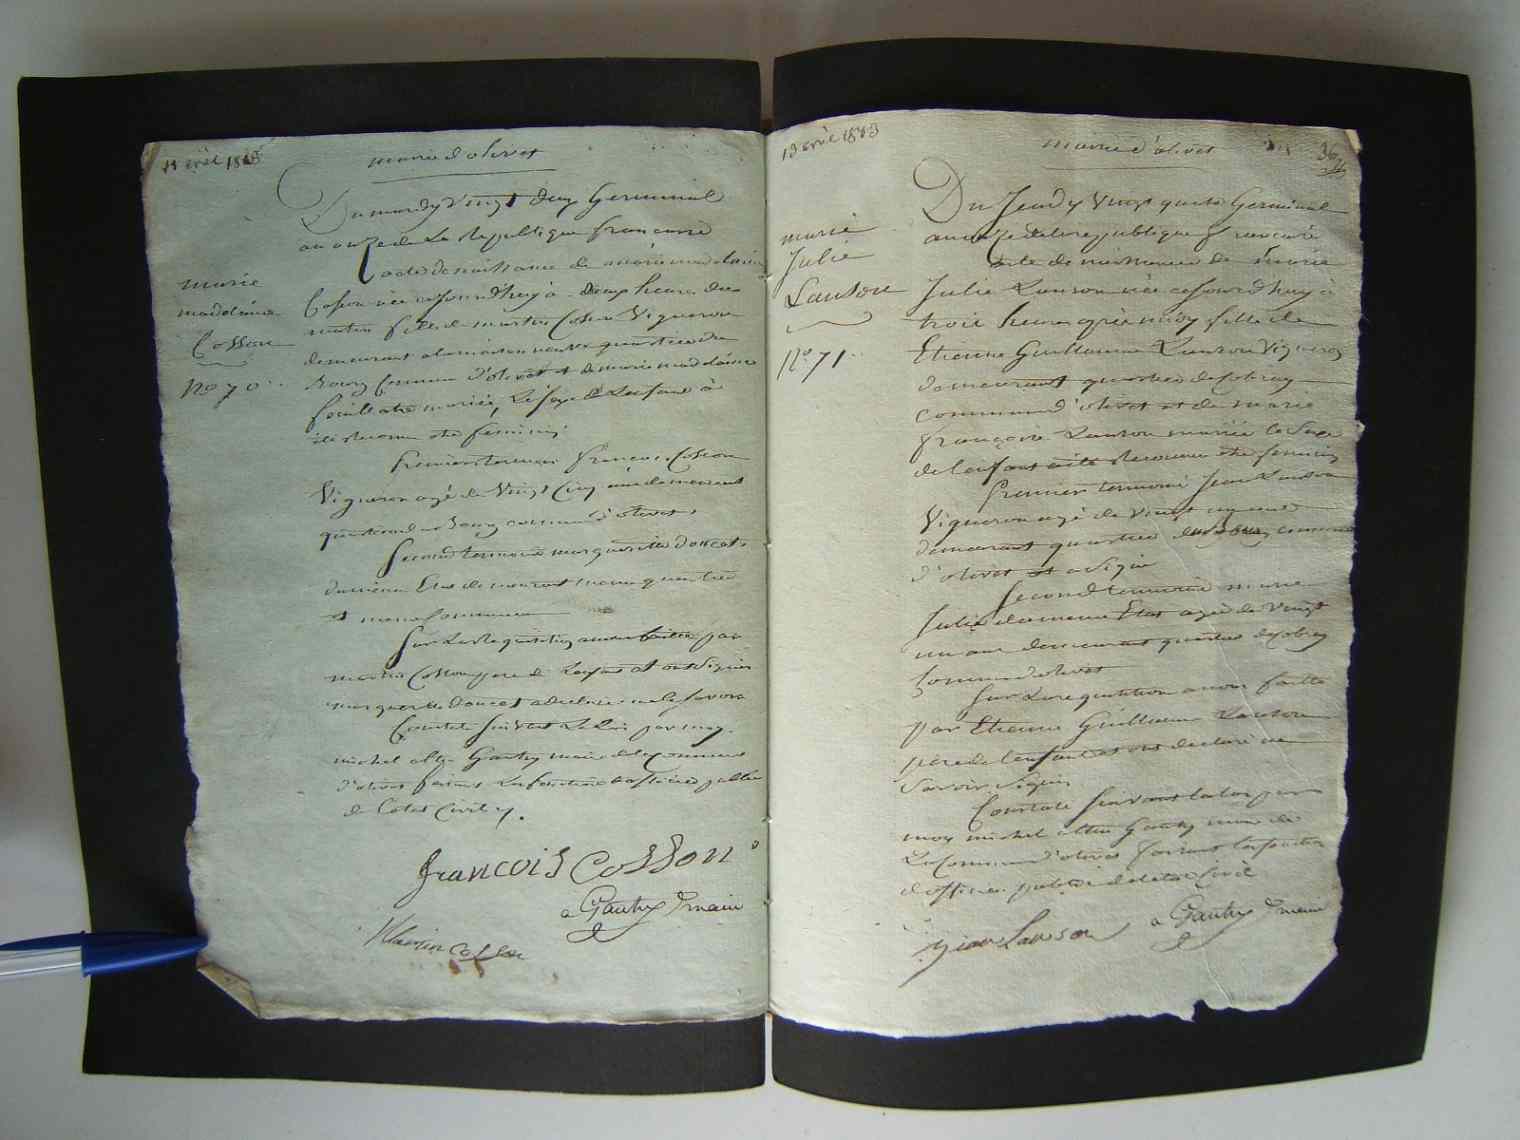 mairie d'olivet
Du mardy Vingt deux Germinal
an onze de La Republique francaise
acte de naissance de marie madelaine
Cosson née cejourdhuy à deux heures du
matin fille de martin Cosson Vigneron
demeurant a la maison neuve quartier du
Bourg Commune d'olivet et de marie madelaine
mariée, Le sexe de Lenfant à
été reconnu etre feminin
marie
madelaine
Cosson
No 70
Premier temoin francois Cosson
Vigneron agé de Vingt Cinq ans demeurant
quartier du Bourg commune d'olivet
Second temoin marguerite doucet
demeurant meme quartier
et meme Commune
Sur La Requisition a nous faitte par
martin Cosson pere de Lenfant et ont Signé
marguerite doucet a declaré ne le savoir
Constaté Suivant La Loi par moy
michel Gautry maire de la Commune
d'olivet faisant Les fonctions d'officier public
de l'etat Civil
francois Cosson
a Gautry maire
Martin cosson
13 avril 1803
mairie d'olivet
36
Du Jeudy Vingt quatre Germinal
an onze de la republique francaise
acte de naissance de marie
Julie Lanson née cejourdhuy à
trois heures après midy fille de
Etienne Guillaume Lanson Vigneron
demeurant quartier de
commune d'olivet et de marie
françoise Lanson mariée le Sexe
de lenfant a été reconnu etre feminin
marie
Julie
Lanson
No. 71.
Premier temoin Jean Lanson
Vigneron agé de Vingt
demeurant quartier du Bourg commune
d'olivet et a Signé
Second temoin marie
Julie agée de Vingt
un ans demeurant quartier de
Commune d'olivet
Sur La requisition a nous faitte
par Etienne Guillaume Lanson
pere de lenfant et ont declaré ne
Savoir Signer
Constaté Suivant la loi par
moy michel Gautry maire de
La Commune d'olivet faisant les fonctions
d'officier public de l'etat Civil
Jean Lanson
a Gautry maire